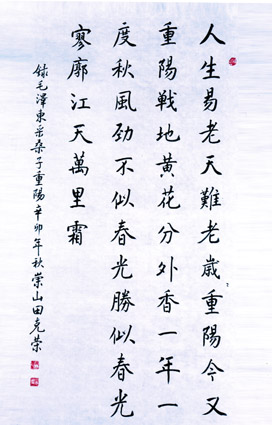 人生易老天難老歲〻重陽今又
重陽戰地黃花分外香一年一
度秋風勁不似春光勝似春光
寥廓江天萬里霜
錄毛澤東采桑子重陽辛卯年秋崇山田克荣